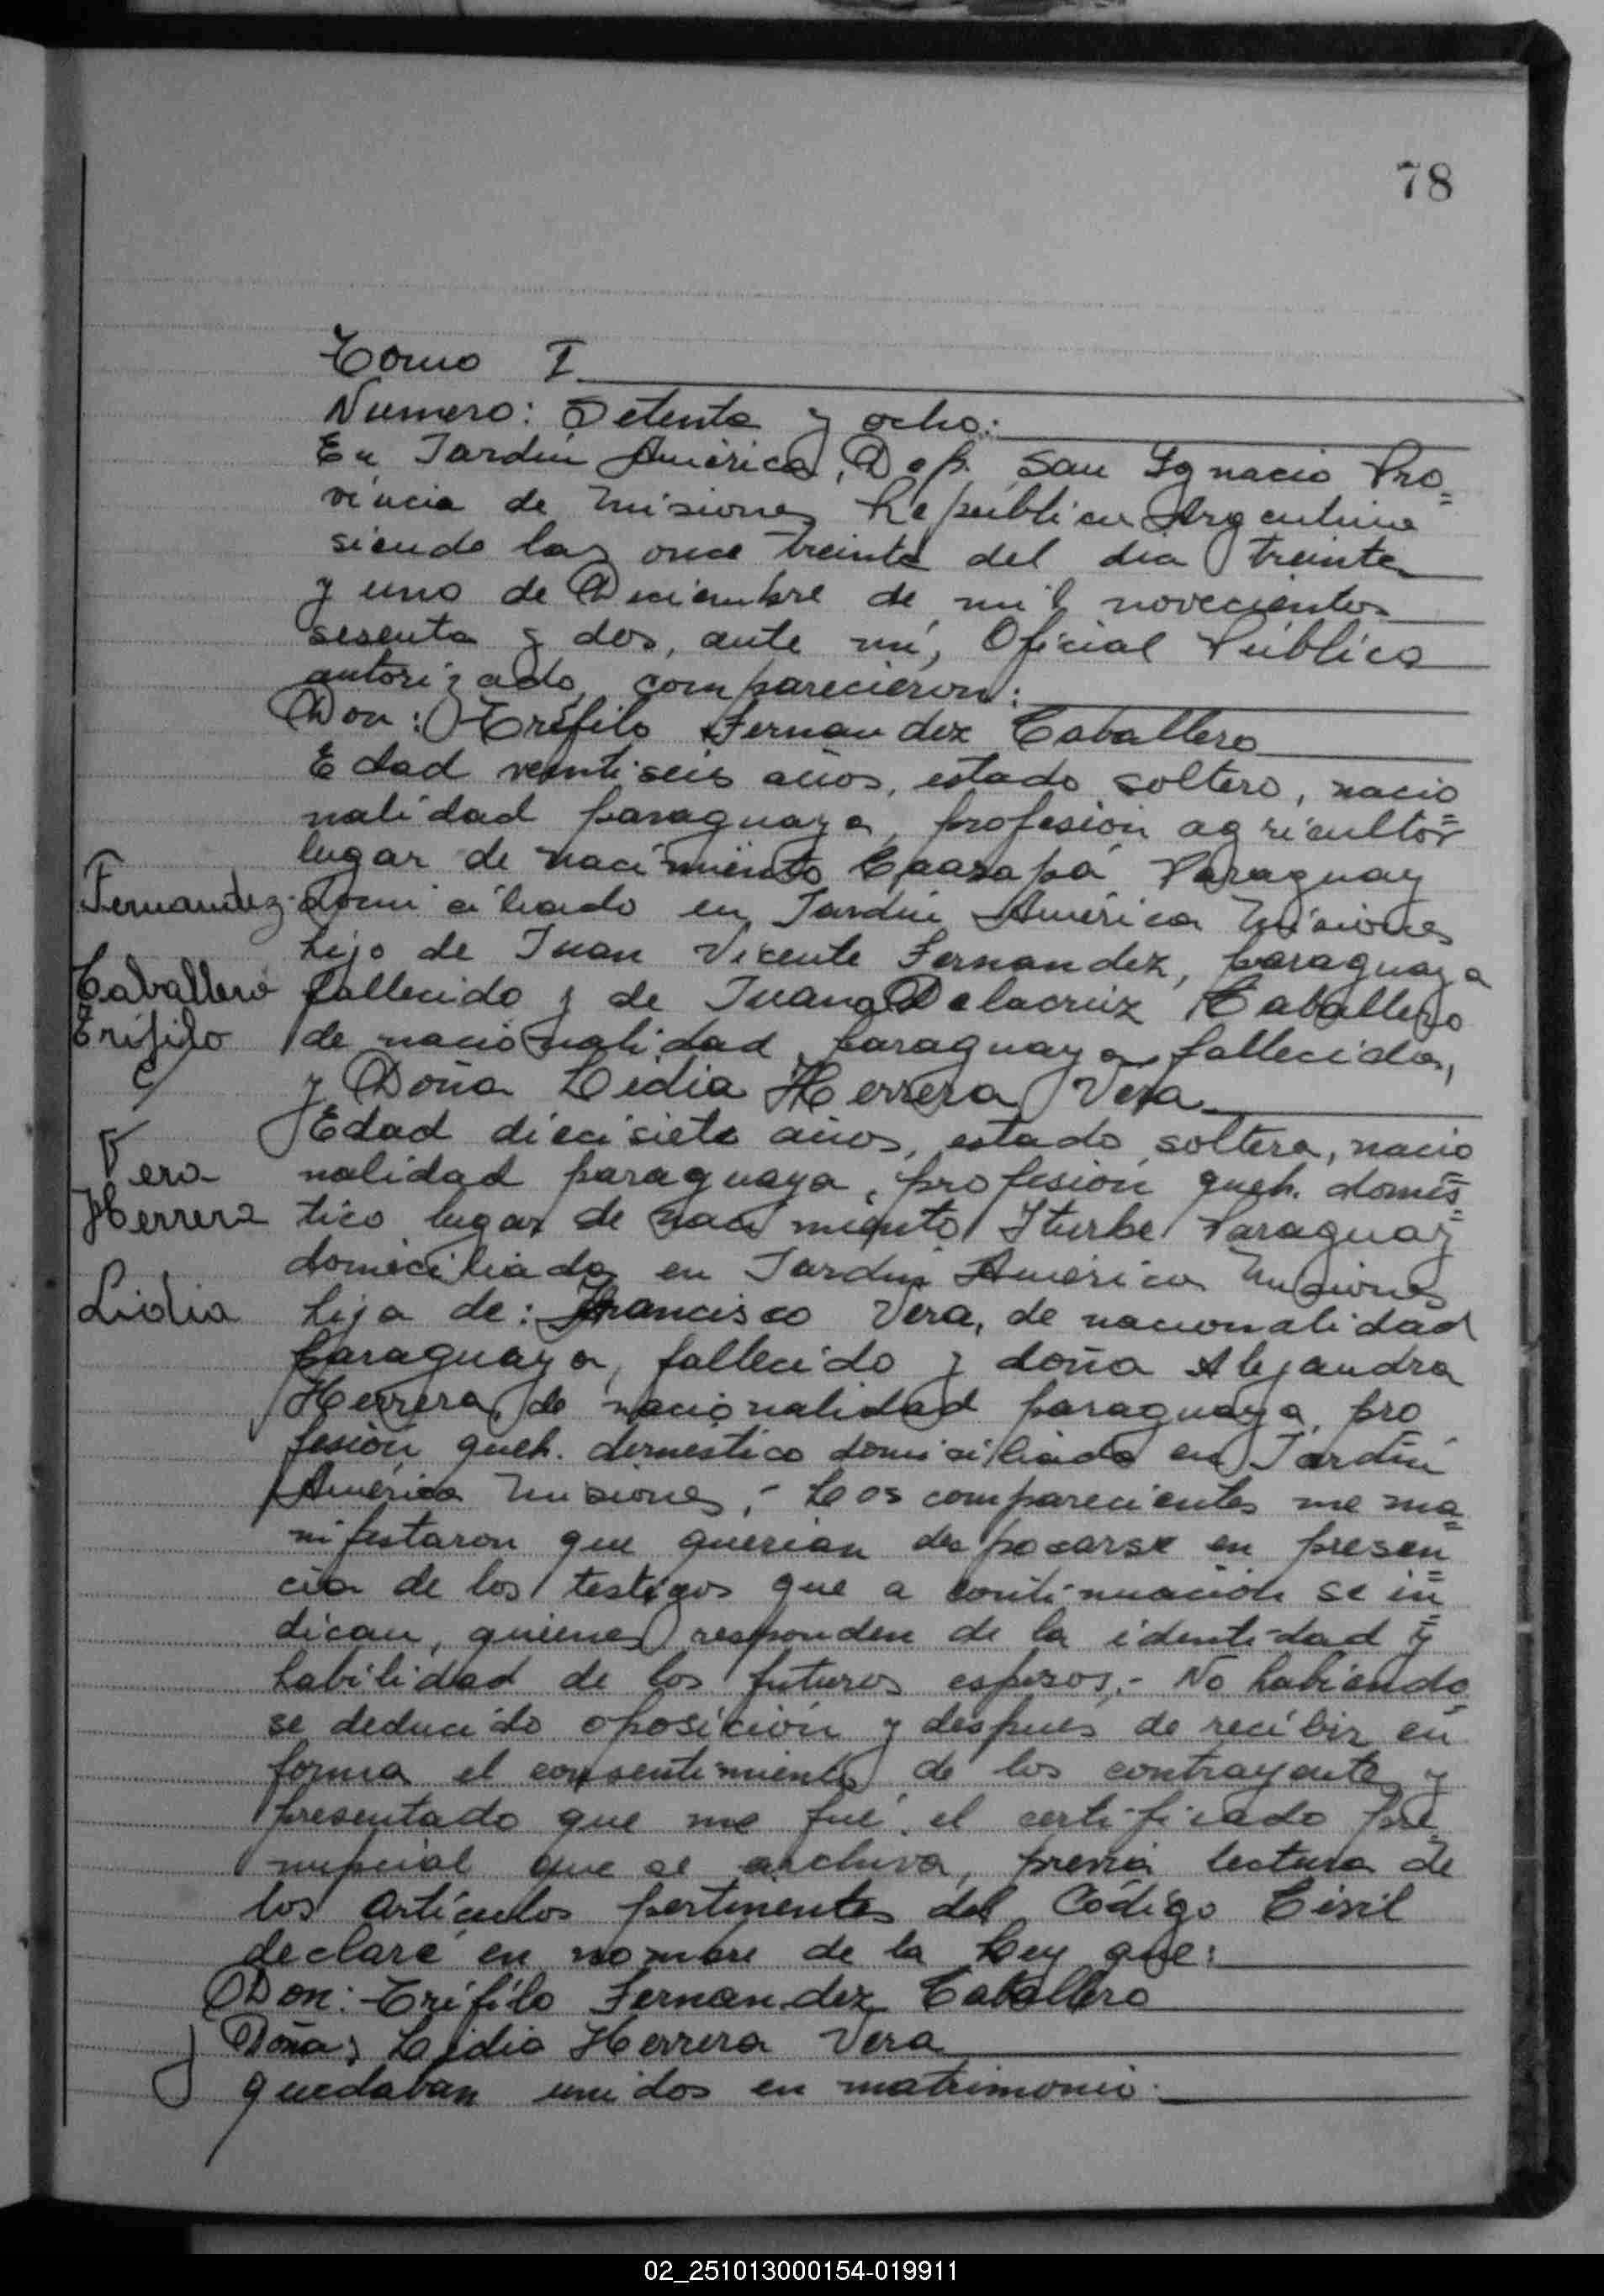 78
Tomo I
Numero: Setenta y ocho:
En Jardin América, Dep. San Ignacio Pro=
vincia de Misiones República Argentina
siendo las once treinta del dia treinta
y uno de Diciembre de mil novecientos
sesenta y dos, ante mí, Oficial Público
autorizado, comparecieron:
Don: Erifilo Fernandez Caballero
Edad veintiseis años, estado soltero, nacio=
nalidad paraguaya, profesión agricultor
lugar de nacimiento Caazapá Paraguay
domiciliado en Jardin América Misiones
hijo de Juan Vicente Fernandez, paraguaya
fallecido y de Juana Delacruz Caballero
de nacionalidad paraguaya fallecida,
y Doña Lidia Herrera Vera
Edad diecisiete años, estado soltera, nacio
nalidad paraguaya, profesión queh. domés=
tico lugar de nacimiento Iturbe Paraguay
domiciliada en Jardin América Misiones
hija de: Francisco Vera, de nacionalidad
paraguaya, fallecido y doña Alejandra
Herrera, de nacionalidad paraguaya, pro
fesión queh. domestico domiciliada en Jardin
América Misiones.- Los comparecientes me ma=
nifestaron que querian desposarse en presen=
cia de los testigos que a continuación se in=
dican, quienes responden de la identidad y
habilidad de los futuros esposos.- No habiendo
se deducido oposición y después de recibir en
forma el consentimiento de los contrayentes y
presentado que me fué el certificado pre=
nupcial que se archiva, previa lectura de
los artículos pertinentes del Código Civil
declaré en nombre de la Ley que:
Don: Erifilo Fernandez Caballero
y Doña: Lidia Herrera Vera
quedaban unidos en matrimonio.
Fernandez
Caballero
Erifilo
c/
Vera
Herrera
Lidia
02_251013000154-019911